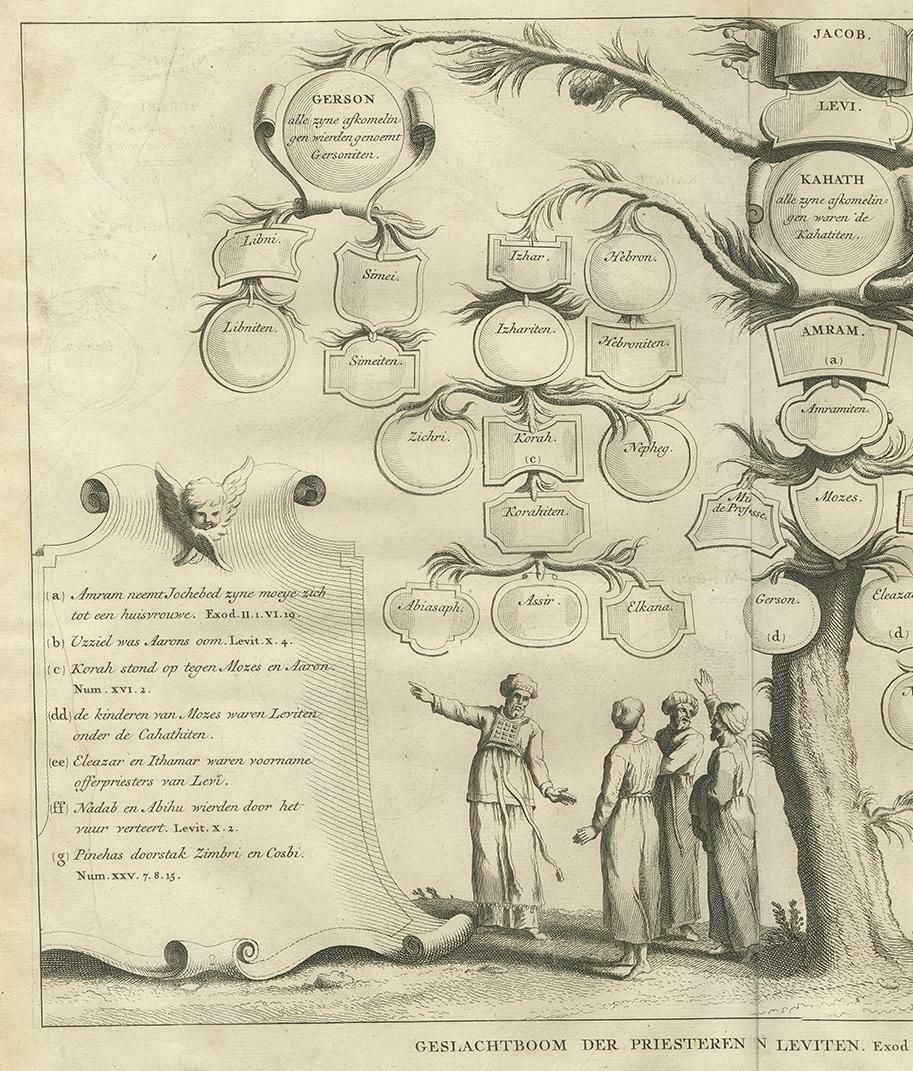 JACOB.
LEVI.
GERSON
alle zyne afkomelin-
gen wierden genoemt
Gersoniten.
KAHATH
alle zyne afkomelin=
gen waren de
Kahatiten.
Libni.
Simei.
Libniten.
Simeiten.
Izhar.
Hebron.
Izhariten.
Hebroniten.
AMRAM.
(a)
Amramiten.
Zichri.
Korah.
(c)
Nepheg.
Korahiten.
Mozes.
de
Abiasaph.
Assir.
Elkana.
Gerson.
(d)
(d)
(a) Amram neemt Jochebed zyne moeye zich
tot een huisvrouwe. Exod. II. 1. VI. 19.
(b) Uzziel was Aarons oom. Levit. X. 4.
(c) Korah stond op tegen Mozes en Aäron.
Num. XVI. 2.
(dd) de kinderen van Mozes waren Leviten
onder de Cahathiten.
(ee) Eleazar en Ithamar waren voorname
offerpriesters van Levi.
(ff) Nadab en Abihu wierden door het
vuur verteert. Levit. X. 2.
(g) Pinehas doorstak Zimbri en Cosbi.
Num. XXV. 7. 8. 15.
GESLACHTBOOM DER PRIESTEREN N LEVITEN. Exod